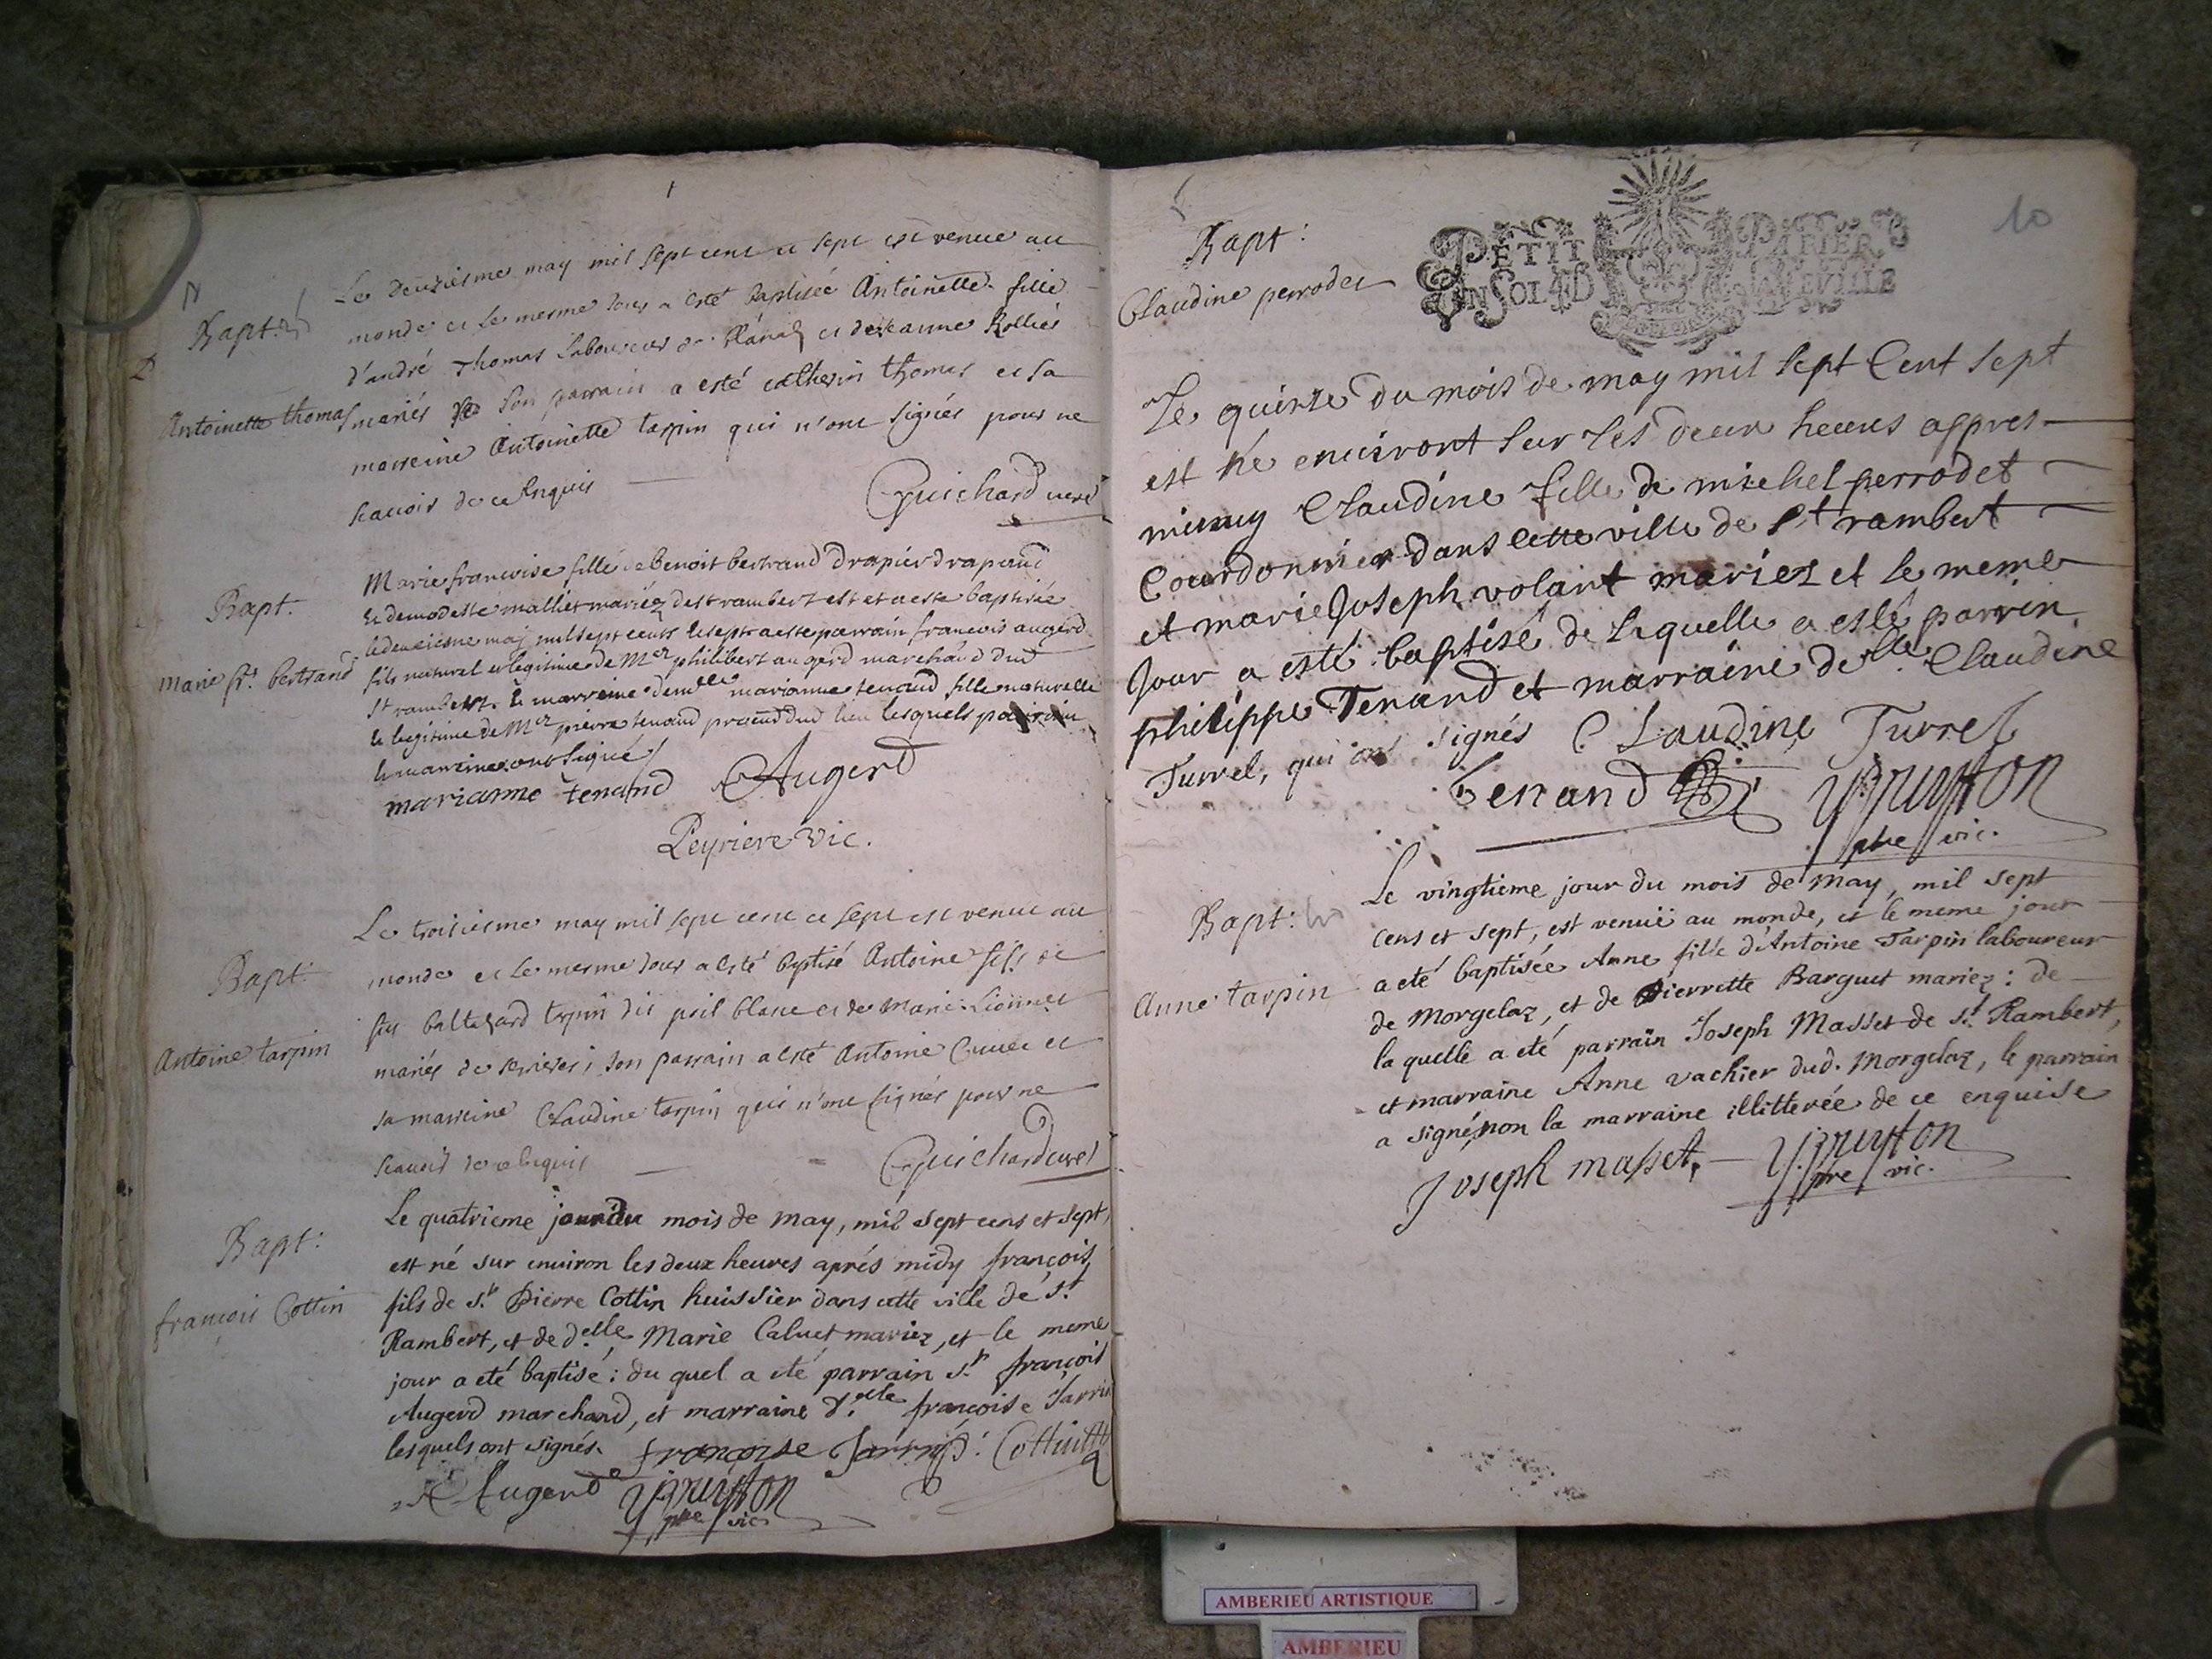 Bapt.
Antoinette thomas
Le deuziesme may mil sept cent et sept est venue au
monde et le mesme jour a esté baptisée Antoinette fille
d'andré Thomas laboureur de et de jeanne Rollier
mariés son parrain a esté catherin thomas et sa
marreine Antoinette tarpin qui n'ont signés pour ne
scavoir de ce enquis
Guichard curé
Bapt.
marie fr. bertrand
Marie francoise fille de benoit bertrand drapier drapand
et demodeste mallier mariez de st rambert est et a este baptisée
le deuxiesme may mil sept cents et sept a este parrain francois augerd
fils naturel et legitime de Mer philibert augerd marchand dud
st rambert et marreine demlle marianne tenand fille naturelle
et legitime de Mer pierre tenand dud lieu lesquels parrain
et marreine ont signé
marianne tenand Augerd
Peyriere vic.
Bapt.
Antoine tarpin
Le troisiesme may mil sept cent et sept est venu au
monde et le mesme jour a esté baptisé Antoine fils de
feu baltazard tarpin dit poil blanc et de Marie
mariés de serrieres; son parrain a esté Antoine et
sa marreine Claudine tarpin qui n'ont signés pour ne
scavoir de ce enquis
Guichard curé
Bapt:
françois Cottin
Le quatrieme jour du mois de may, mil sept cens et sept,
est né sur environ les deux heures aprés midy françois
fils de Sr Pierre Cottin huissier dans cette ville de St
Rambert, et de d.elle Marie Caluet mariez, et le meme
jour a eté baptisé: du quel a eté parrain Sr françois
Augerd marchand, et marraine d.elle françoise Jarrin
lesquels ont signés. françoise Jarrin Cottin
Augerd
pbre vic.
10
PETIT PAPIER
UN SOL 4 D LE FEVILLE
Bapt:
Claudine perrodet
Le quinze du mois de may mil sept Cent sept
est né environt sur les deux heures appres
mieuy Claudine fille de michel perrodet
Courdonnier dans cette ville de St rambert
et marie Joseph volant mariez et le meme
Jour a esté baptisé de laquelle a esté parrin
philippe Tenand et marraine delle Claudine
Turrel, qui ont signés Claudine Turrel
Tenand
pbre vic.
Bapt:
Anne tarpin
Le vingtieme jour du mois de may, mil sept
cens et sept, est venuë au monde, et le meme jour
a eté baptisée Anne fille d'Antoine Tarpin laboureur
de Morgelaz, et de Pierrette Barguet mariez: de
la quelle a eté parrain Joseph Masset de St Rambert,
et marraine Anne vachier dud. Morgelaz, le parrain
a signé, non la marraine illitterée de ce enquise
Joseph masset,
pre vic.
AMBERIEU ARTISTIQUE
AMBERIEU